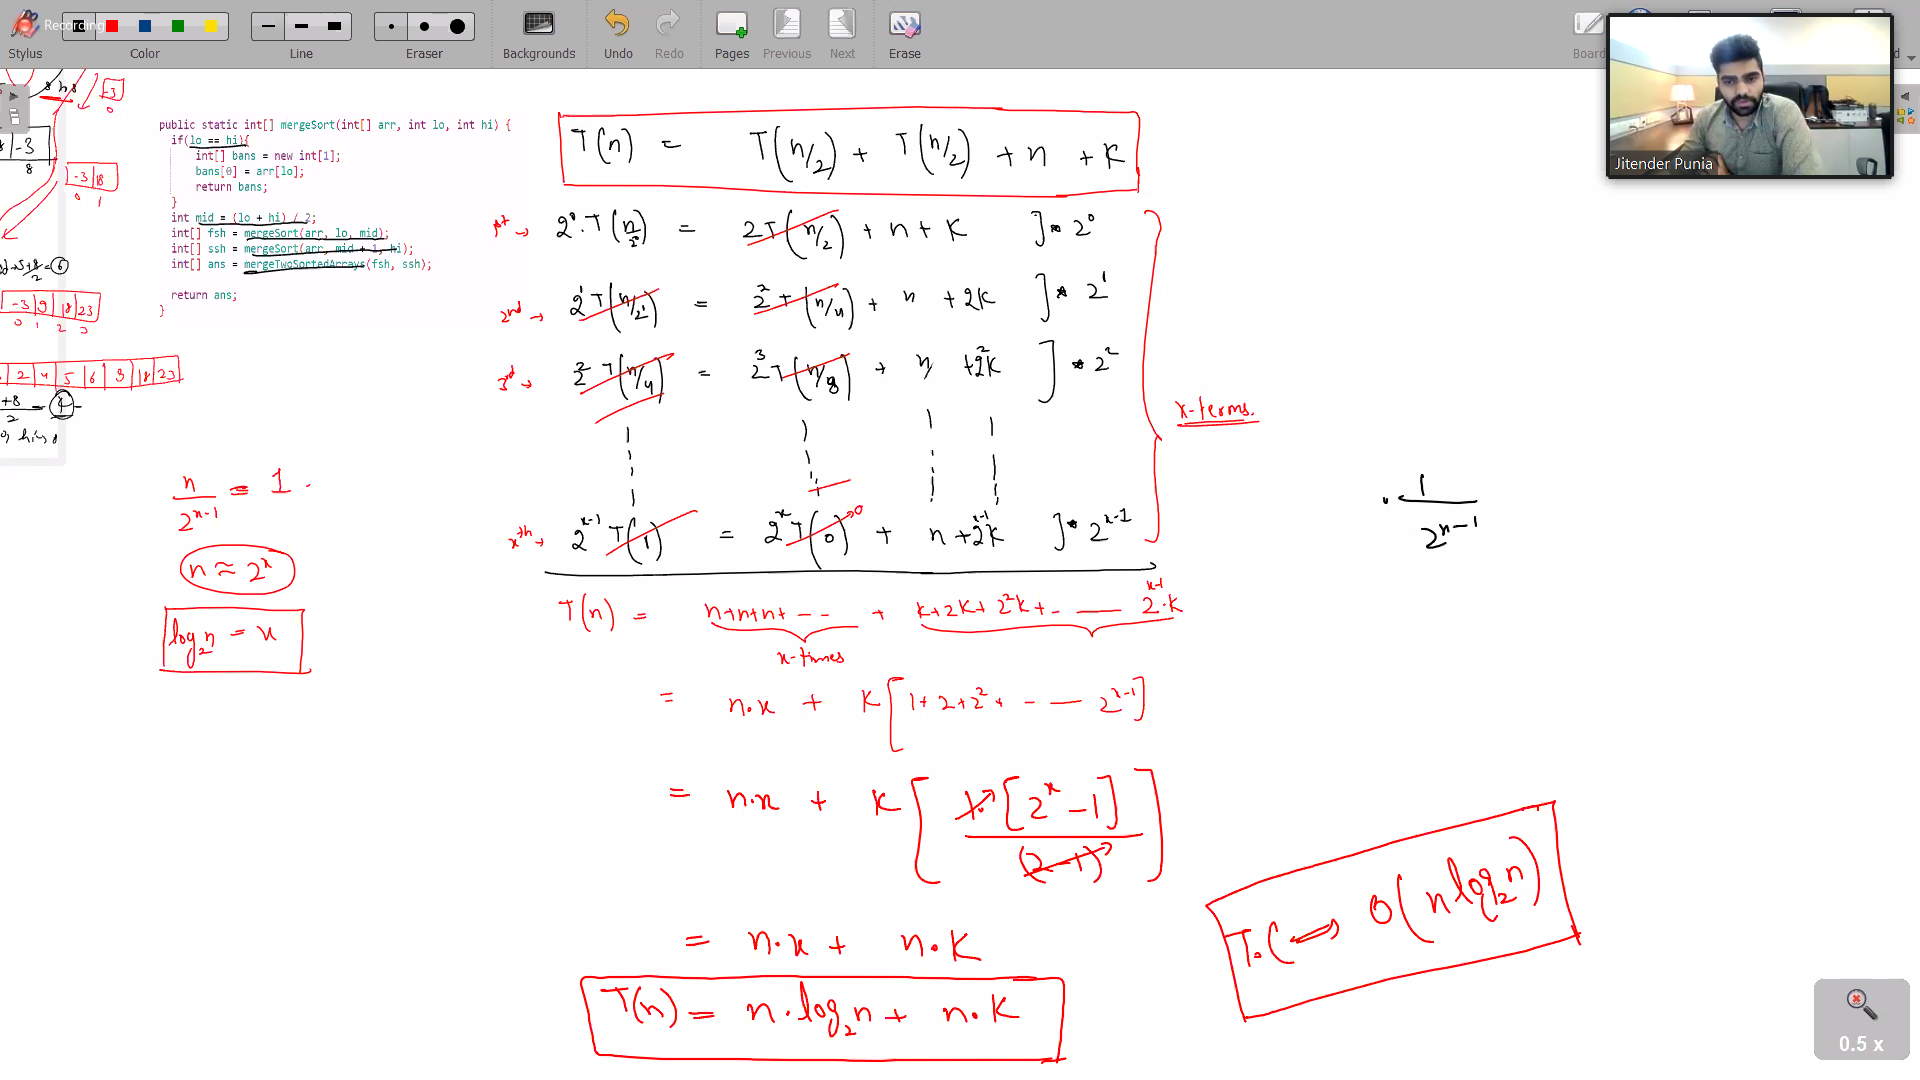 Recording
Stylus Color Line Eraser Backgrounds Undo Redo Pages Previous Next Erase Board
Jitender Punia
public static int[] mergeSort(int[] arr, int lo, int hi) {
if(lo == hi){
int[] bans = new int[1];
bans[0] = arr[lo];
return bans;
}
int mid = (lo + hi) / 2;
int[] fsh = mergeSort(arr, lo, mid);
int[] ssh = mergeSort(arr, mid + 1, hi);
int[] ans = mergeTwoSortedArrays(fsh, ssh);
return ans;
}
-3
0
-3
8
-3 | 18
0 1
-3 | 9 | 18 | 23
0 1 2 3
2 | 4 | 5 | 6 | 9 | 18 | 23
+8/2 = 4
T(n) = T(n/2) + T(n/2) + n + K
1st → 2^0 · T(n/2^0) = 2T(n/2) + n + K ] * 2^0
2nd → 2^1 T(n/2^1) = 2^2 T(n/4) + n + 2K ] * 2^1
3rd → 2^2 T(n/4) = 2^3 T(n/8) + n + 2^2K ] * 2^2
x-terms.
xth → 2^x-1 T(1) = 2^x T(0) 0 + n + 2^x-1K ] * 2^x-1
n/2^x-1 = 1
n ≈ 2^x
log₂n = x
1/2^n-1
T(n) = n+n+n+ -- + K+2K+2^2K+ - — 2^x-1·K
x-times
= n·x + K[1+2+2^2+ - — 2^x-1]
= n·x + K[1·[2^x -1]/(2-1)]
= n·x + n·K
T(n) = n·log₂n + n·K
T.C ⇒ O(n log₂n)
0.5 x